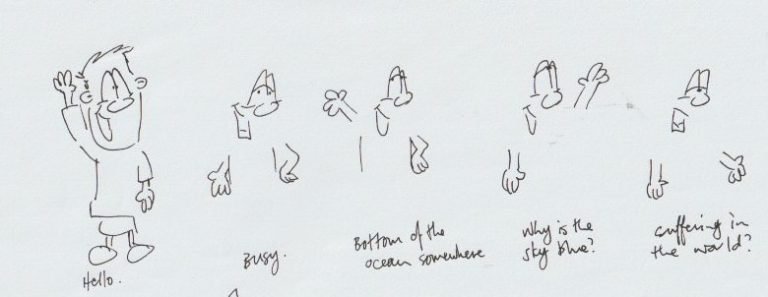 Hello.
Busy.
Bottom of the
ocean somewhere
Why is the
sky blue?
suffering in
the world?